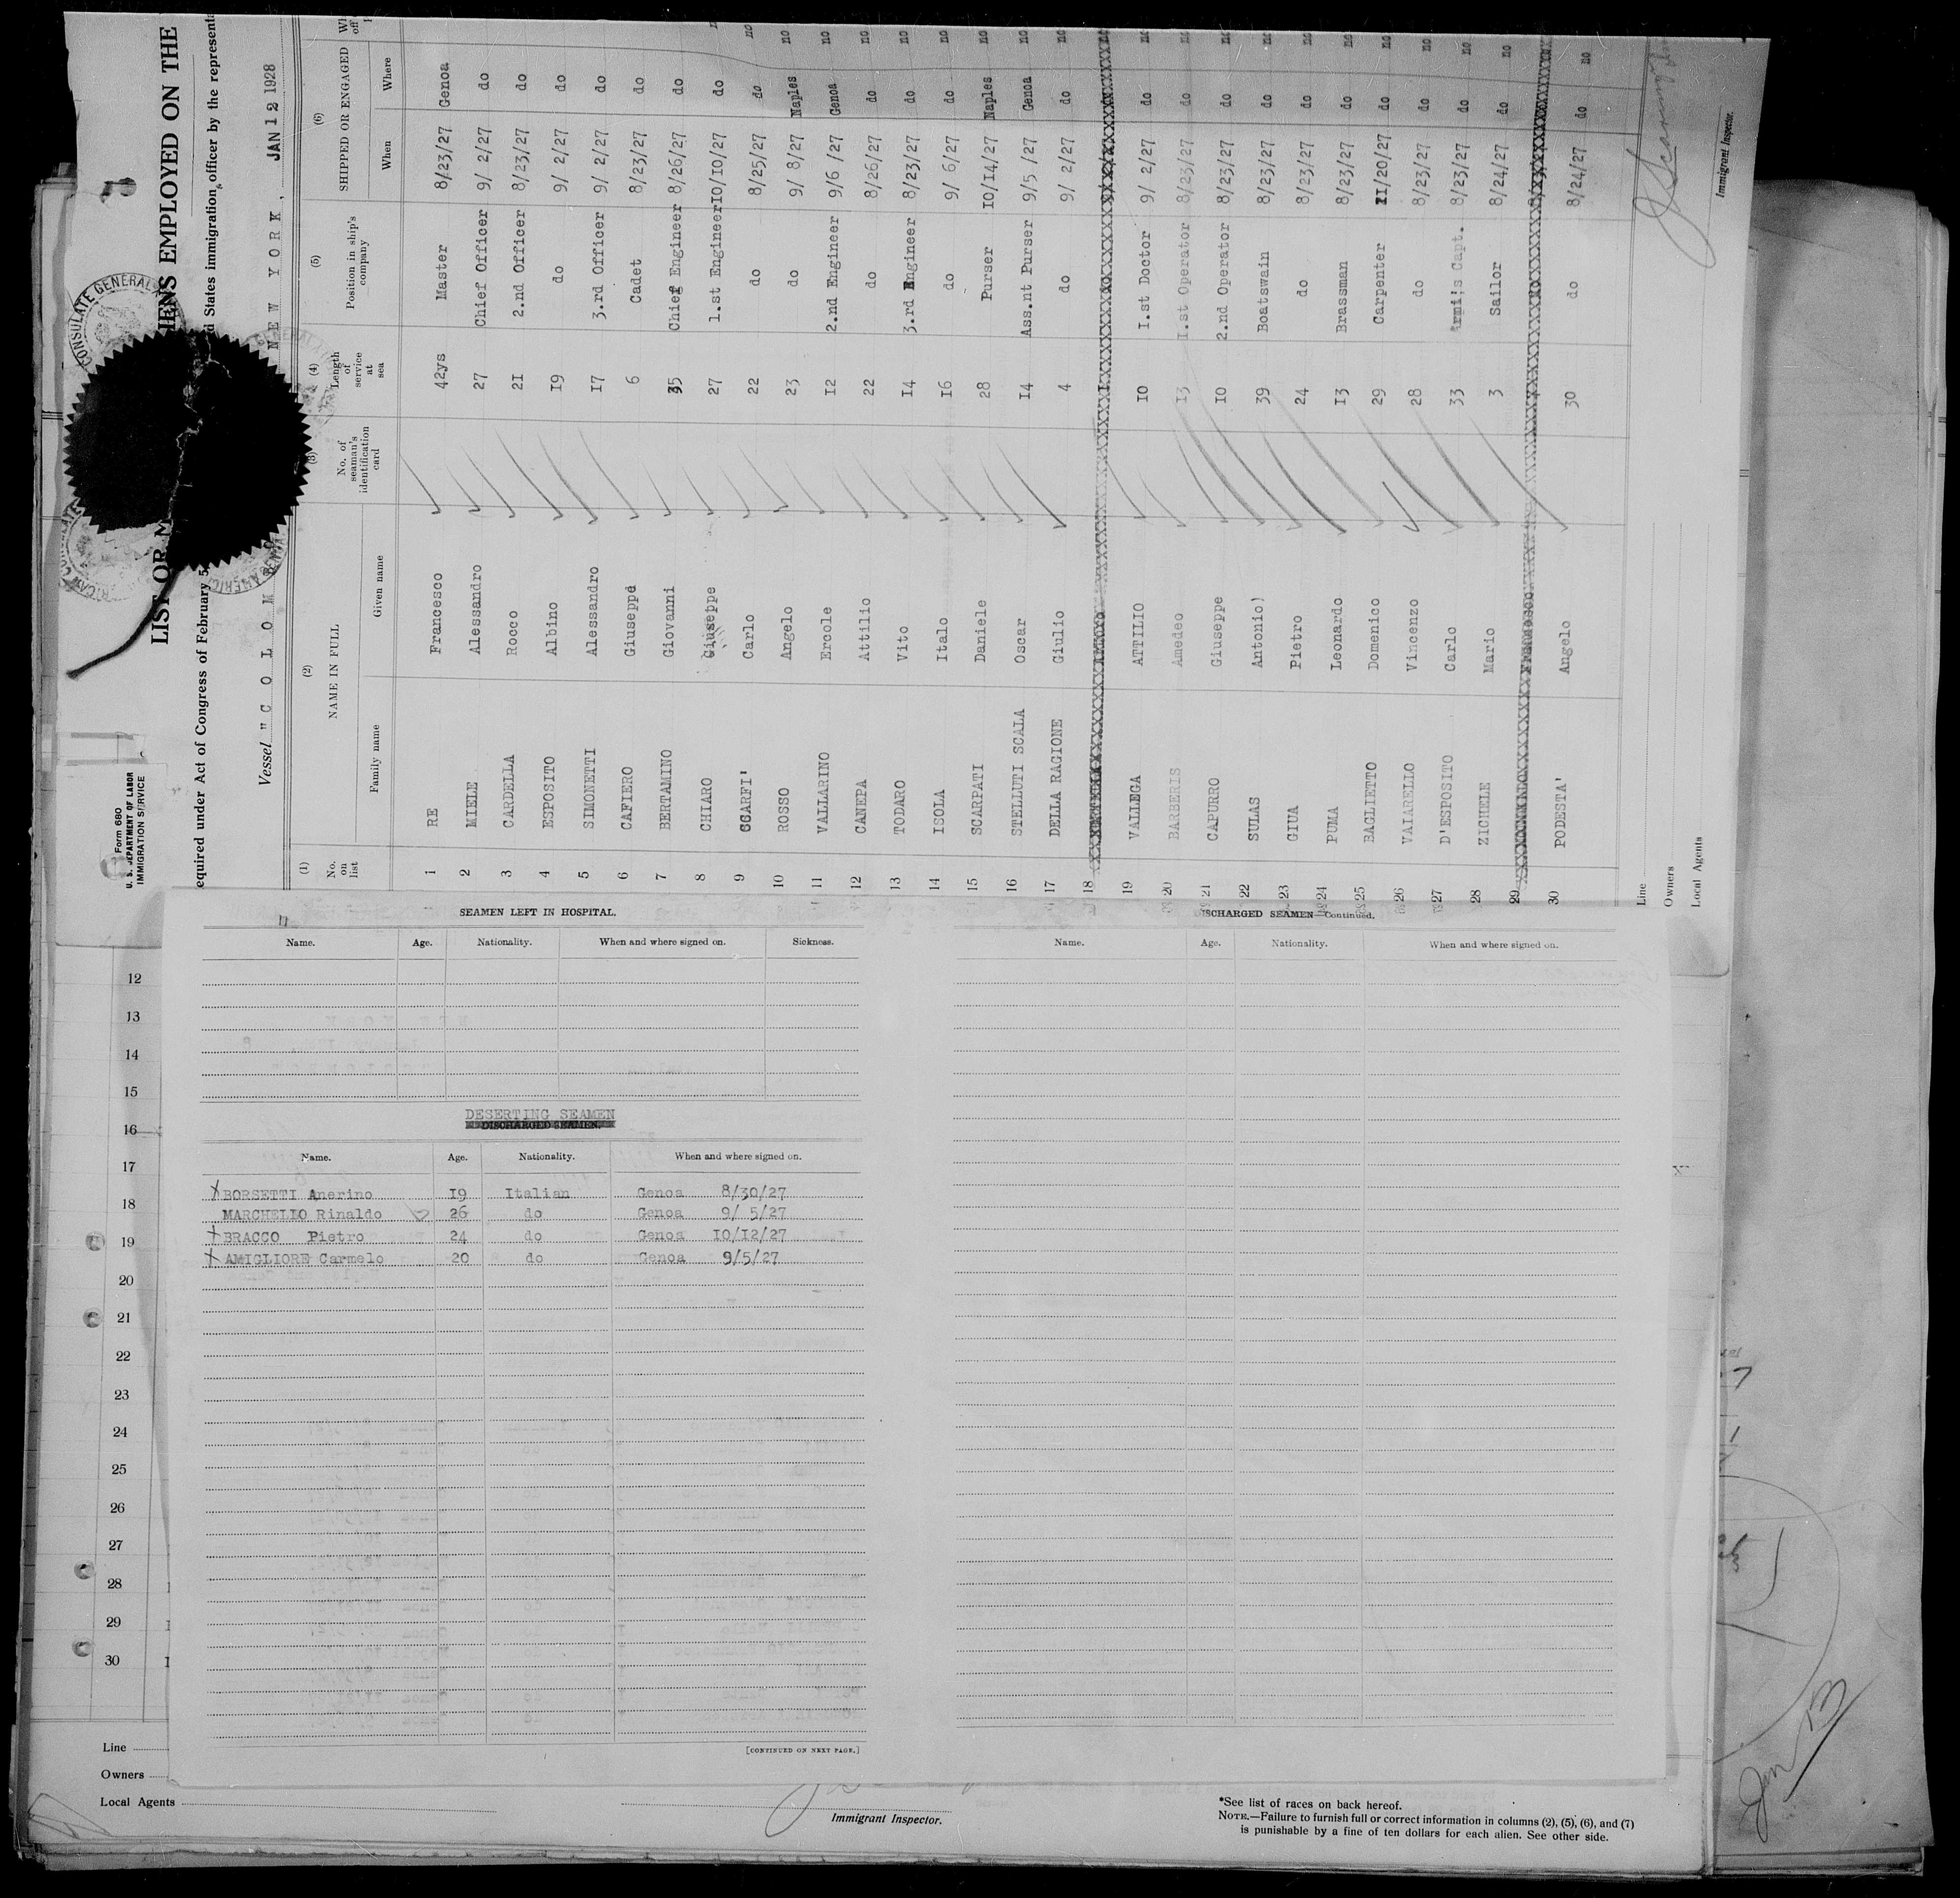 Form 680
U. S. DEPARTMENT OF LABOR
IMMIGRATION SERVICE
LIST OR M ENS EMPLOYED ON THE
equired under Act of Congress of February 5 d States immigration officer by the represent
Vessel "COLOM NEW YORK, JAN 12 1928
CONSULATE GENERAL
(1) (2) (3) (4) (5) (6)
No. on list NAME IN FULL No. of seaman's identification card Length of service at sea Position in ship's company SHIPPED OR ENGAGED
Family name Given name When Where
1 RE Francesco 42ys Master 8/23/27 Genoa
2 MIELE Alessandro 27 Chief Officer 9/ 2/27 do
3 CARDELLA Rocco 21 2.nd Officer 8/23/27 do
4 ESPOSITO Albino 19 do 9/ 2/27 do
5 SIMONETTI Alessandro 17 3.rd Officer 9/ 2/27 do
6 CAFIERO Giuseppe 6 Cadet 8/23/27 do
7 BERTAMINO Giovanni 35 Chief Engineer 8/26/27 do
8 CHIARO Giuseppe 27 1.st Engineer 10/10/27 do
9 SCARFI' Carlo 22 do 8/25/27 do no
10 ROSSO Angelo 23 do 9/ 8/27 Naples no
11 VALLARINO Ercole 12 2.nd Engineer 9/6 /27 Genoa no
12 CANEPA Attilio 22 do 8/26/27 do no
13 TODARO Vito 14 3.rd Engineer 8/23/27 do no
14 ISOLA Italo 16 do 9/ 6/27 do no
15 SCARPATI Daniele 28 Purser 10/14/27 Naples no
16 STELLUTI SCALA Oscar 14 Ass.nt Purser 9/5 /27 Genoa no
17 DELLA RAGIONE Giulio 4 do 9/ 2/27 do no
18
19 VALLEGA ATTILIO 10 I.st Doctor 9/ 2/27 do no
20 BARBERIS Amedeo 13 I.st Operator 8/23/27 do no
21 CAPURRO Giuseppe 10 2.nd Operator 8/23/27 do no
22 SULAS Antonio) 39 Boatswain 8/23/27 do no
23 GIUA Pietro 24 do 8/23/27 do no
24 PUMA Leonardo 13 Brassman 8/23/27 do no
25 BAGLIETO Domenico 29 Carpenter 11/20/27 do no
26 VAIARELLO Vincenzo 28 do 8/23/27 do no
27 D'ESPOSITO Carlo 33 Capt. 8/23/27 do no
28 ZICHELE Mario 3 Sailor 8/24/27 do no
29
30 PODESTA' Angelo 30 do 8/24/27 do no
Line
Owners
Local Agents
Immigrant Inspector.
SEAMEN LEFT IN HOSPITAL.
Name. Age. Nationality. When and where signed on. Sickness.
DESERTING SEAMEN
DISCHARGED SEAMEN.
Name. Age. Nationality. When and where signed on.
BORSETTI Anerino 19 Italian Genoa 8/30/27
MARCHELLO Rinaldo 26 do Genoa 9/ 5/27
BRACCO Pietro 24 do Genoa 10/12/27
AMIGLIORE Carmelo 20 do Genoa 9/5/27
[CONTINUED ON NEXT PAGE.]
DISCHARGED SEAMEN—Continued.
Name. Age. Nationality. When and where signed on.
12
13
14
15
16
17
18
19
20
21
22
23
24
25
26
27
28
29
30
Line
Owners
Local Agents
Immigrant Inspector.
*See list of races on back hereof.
NOTE.—Failure to furnish full or correct information in columns (2), (5), (6), and (7)
is punishable by a fine of ten dollars for each alien. See other side.
Jan 13